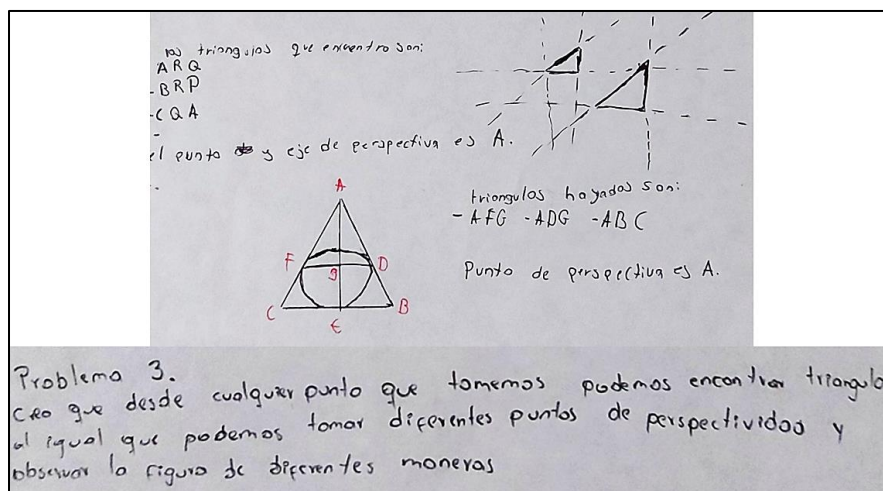 los triangulos que encuentro son:
ARQ
-BRP
-CQA
-
el punto y eje de perspectiva es A.
A
F
g
D
C
E
B
triangulos hayados son:
- AFG -ADG -ABC
Punto de perspectiva es A.
Problema 3.
Creo que desde cualquier punto que tomemos podemos encontrar triangulo
al igual que podemos tomar diferentes puntos de perspectividad y
observar la figura de diferentes maneras